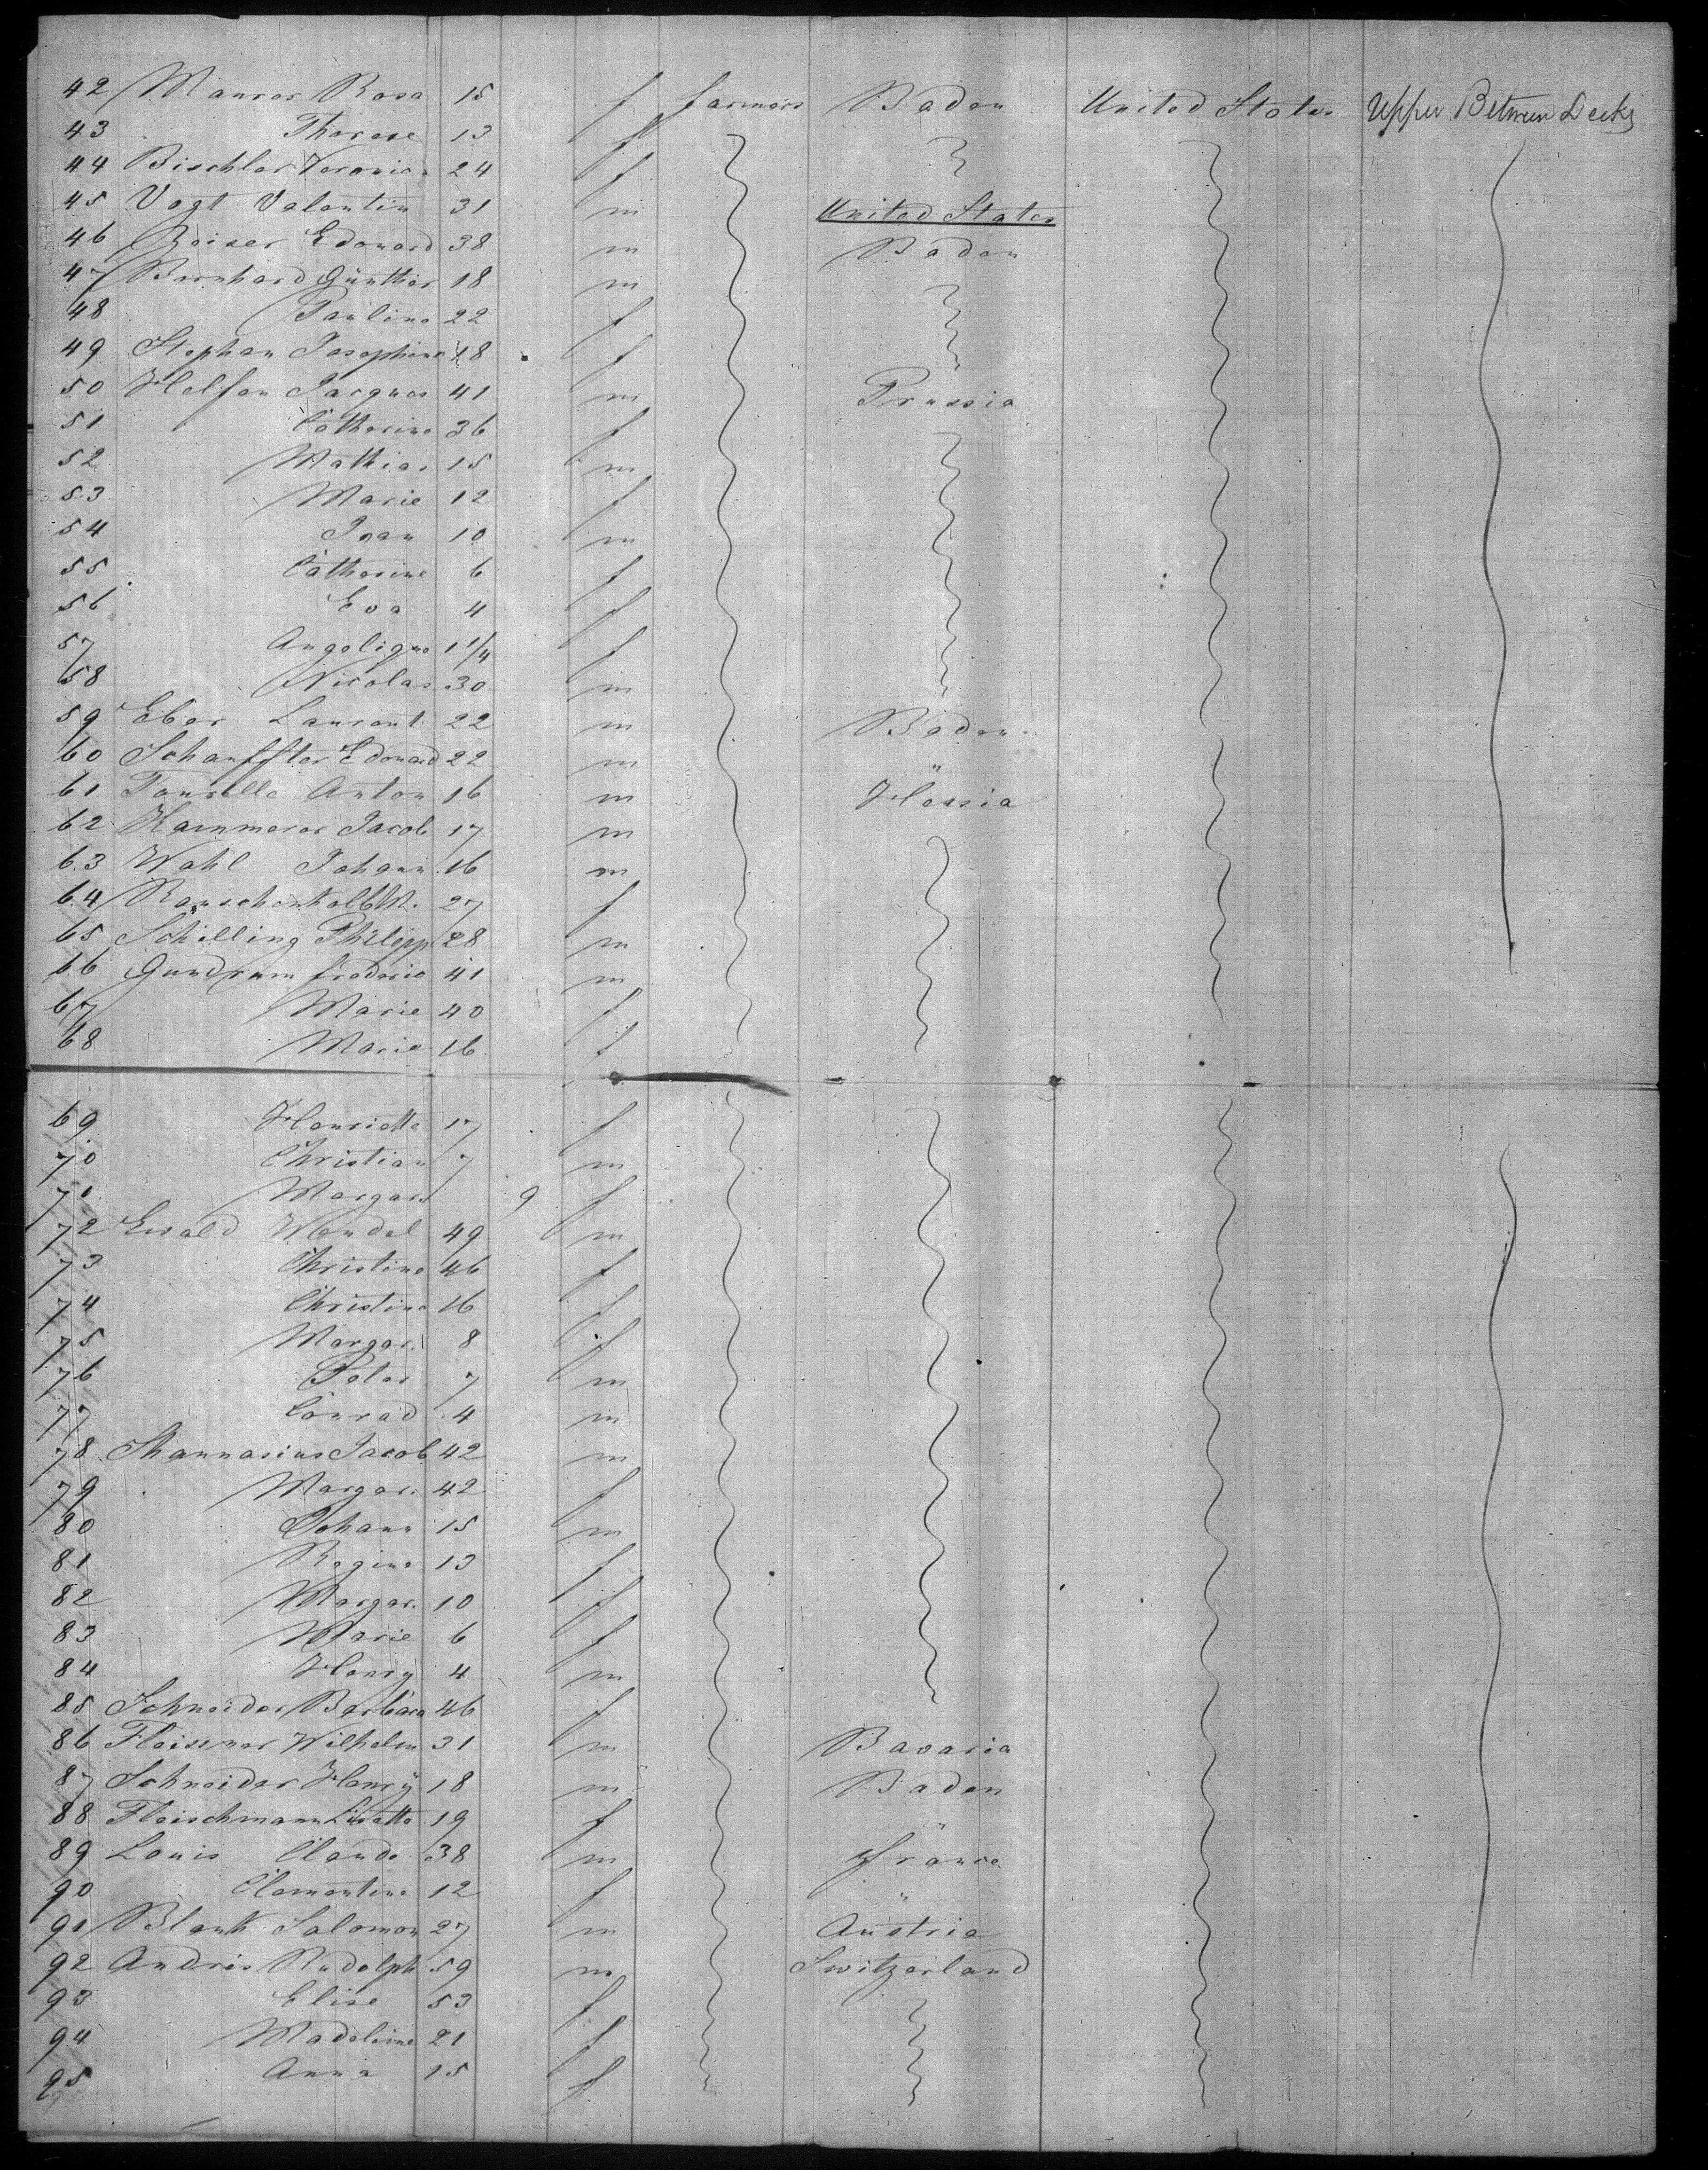 42 Maurer Rosa 15 f farmers Baden United States Upper Between Decks
43 Therese 13 f
44 Bischler Veronica 24 f
45 Vogt Valentin 31 m United States
46 Edouard 38 m Baden
47 Bernhard Günther 18 m
48 Pauline 22 f
49 Stephan Josephine 18 f
50 Helfen Jacques 41 m Prussia
51 Catherine 36 f
52 Mathias 15 m
53 Marie 12 f
54 Jean 10 m
55 Catherine 6 f
56 Eva 4 f
57 Angelique 1 1/4 f
58 Nicolas 30 m
59 Eber Laurent 22 m Baden
60 Schauffler Edouard 22 m "
61 Anton 16 m Hessia
62 Kammerer Jacob 17 m
63 Wahl Johann 16 m
64 27 f
65 Schilling Philipp 28 m
66 Gundrum frederic 41 m
67 Marie 40 f
68 Marie 16 f
69 Henriette 17 f
70 Christian 7 m
71 Margar. 9 f
72 Ewald Wendel 49 m
73 Christine 46 f
74 Christine 16 f
75 Margar. 8 f
76 Peter 7 m
77 Conrad 4 m
78 Jacob 42 m
79 Margar. 42 f
80 Johann 15 m
81 Regina 13 f
82 Margar. 10 f
83 Marie 6 f
84 Henry 4 m
85 Schneider Barbara 46 f
86 Fleissner Wilhelm 31 m Bavaria
87 Schneider Henry 18 m Baden
88 Fleischmann Lisette 19 f "
89 Louis Claude 38 m france
90 Clementine 12 f "
91 Blank Salomon 27 m Austria
92 Andris Rudolph 59 m Switzerland
93 Elise 53 f
94 Madeleine 21 f
95 Anna 15 f